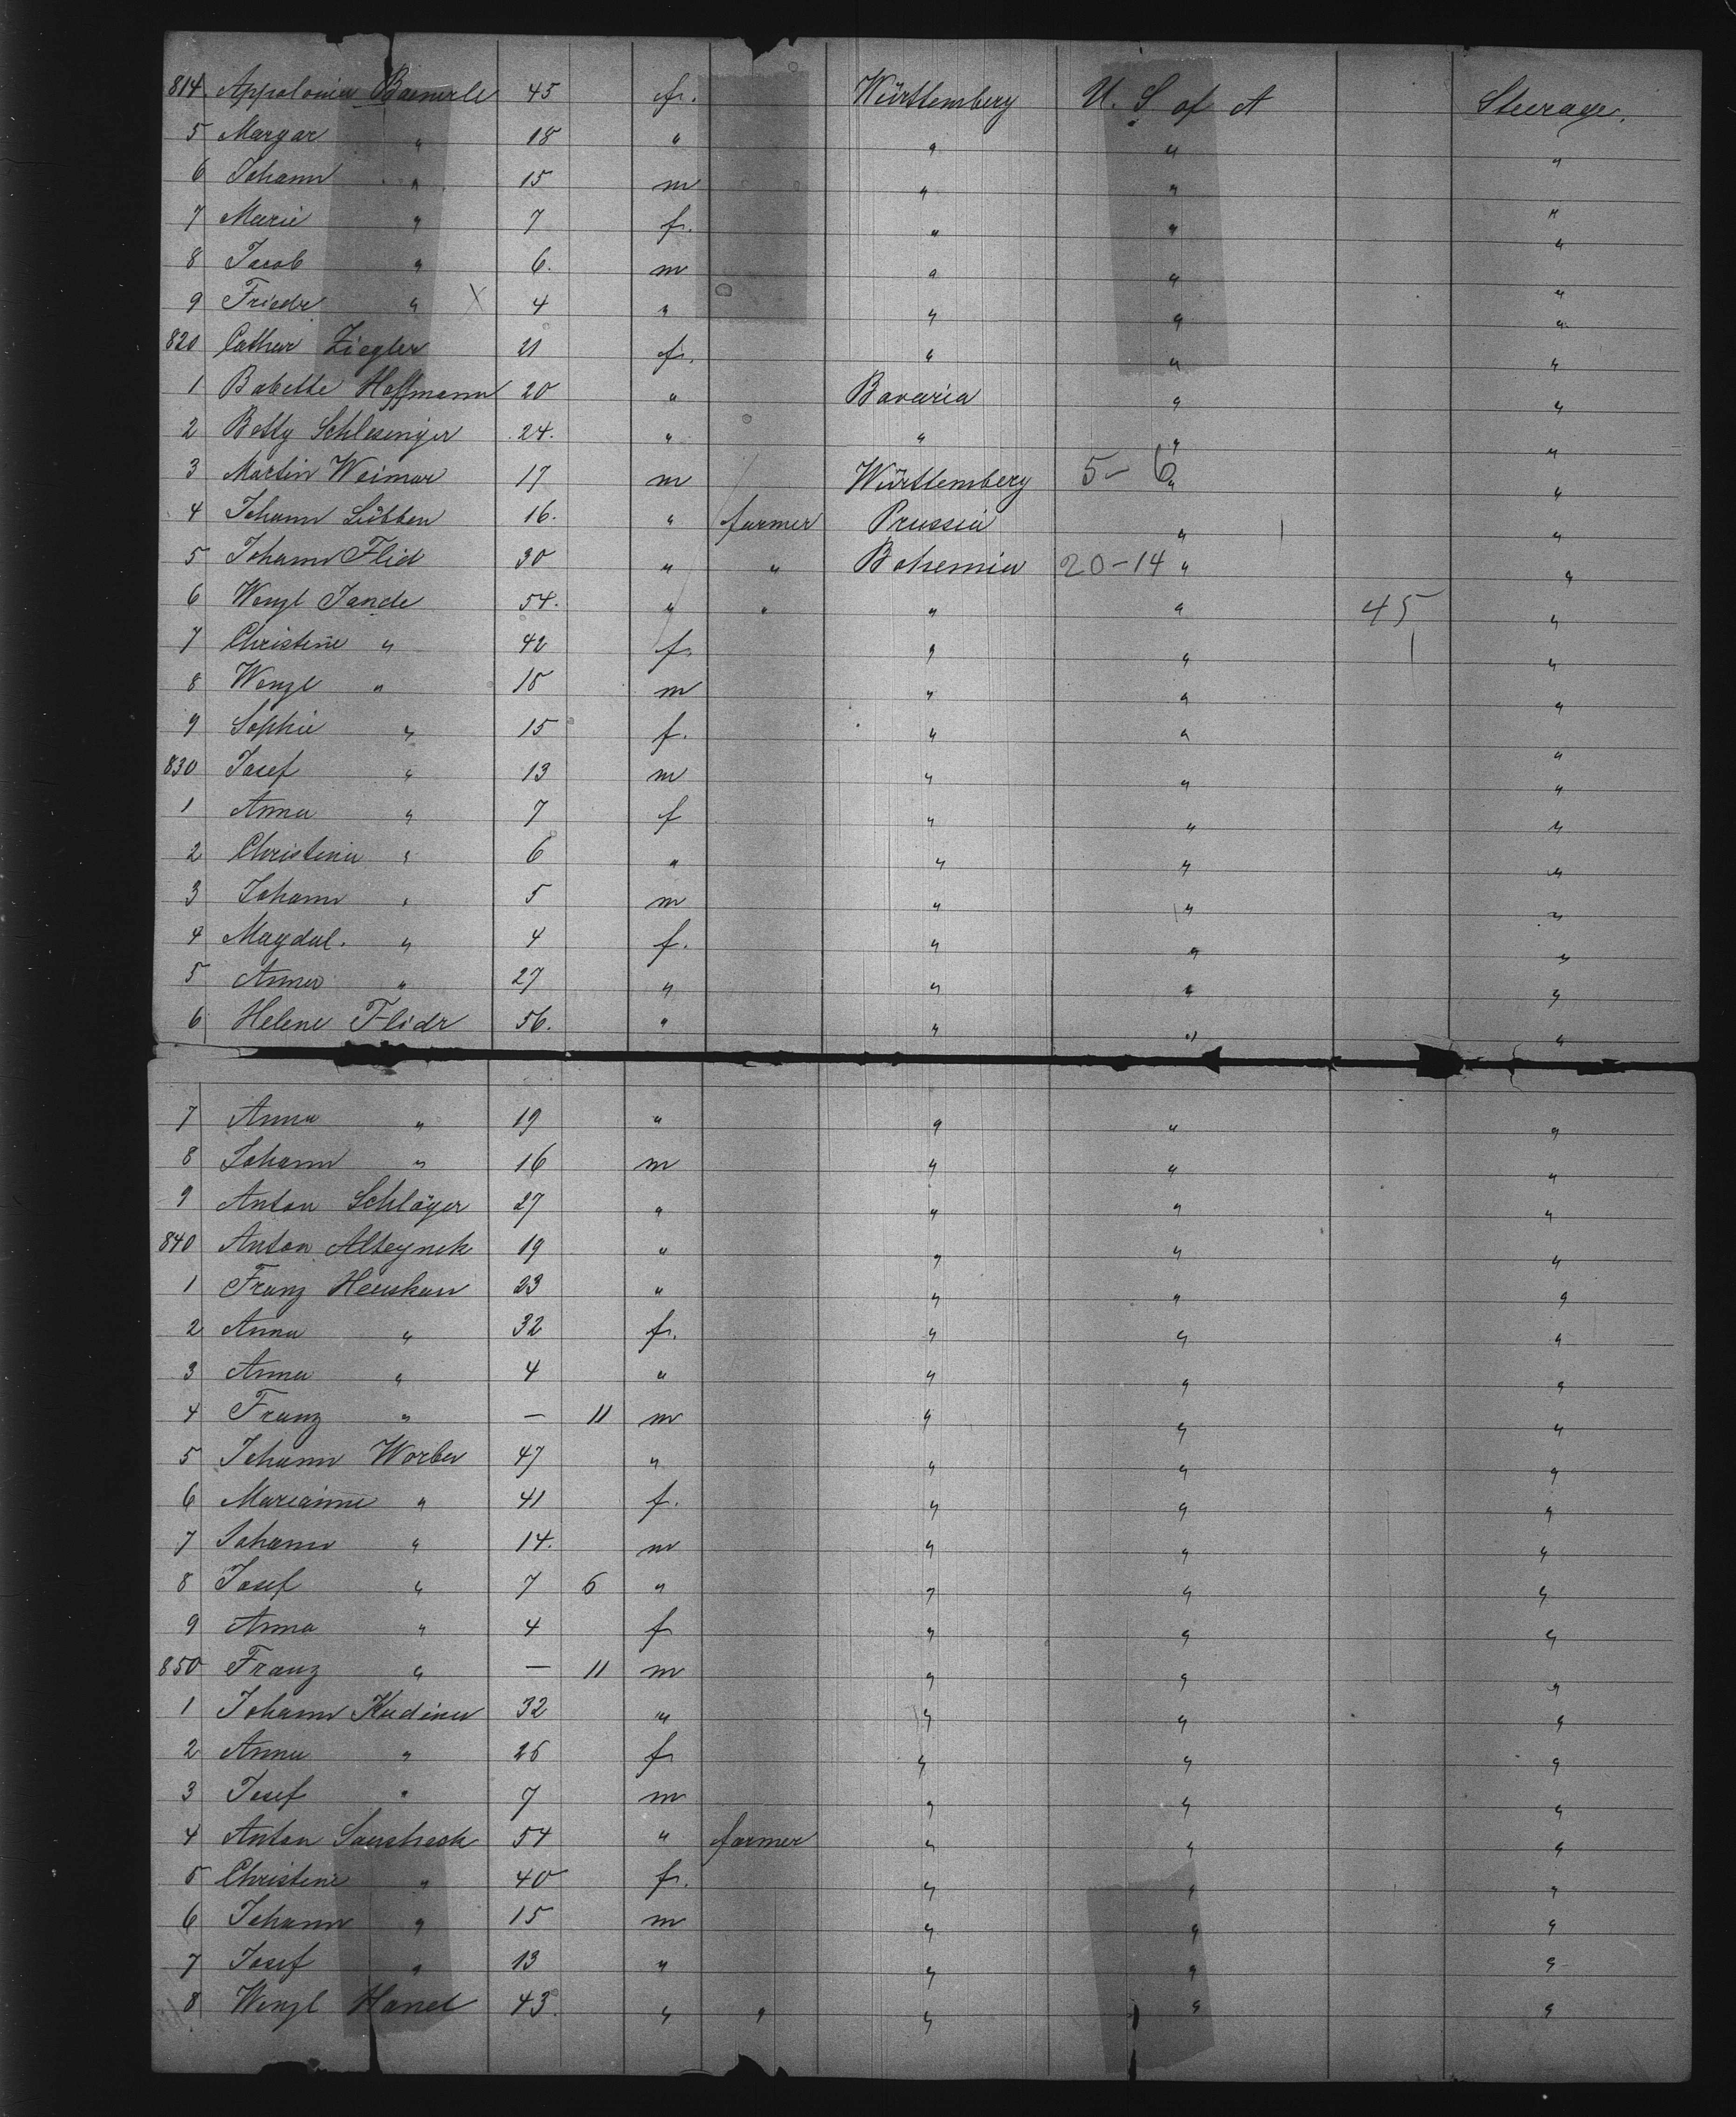 814. Appolonia Baeuerle 45 f. Württemberg U. S of A Steerage.
5 Margar " 18 " " " "
6 Johann " 15 m " " "
7 Marie " 7 f. " " "
8 Jacob " 6. m " " "
9 Friedr " X 4 " " " "
820 Cathar Ziegler 21 f. " " "
1 Babette Hoffmann 20 " Bavaria " "
2 Betty Schlesinger 24. " " " "
3 Martin Weimar 17 m Württemberg 5-6 " "
4 Johann Lübben 16. " farmer Prussia " "
5 Johann Flid 30 " " Bohemia 20-14 " "
6 Wenzl Jande 54. " " " " 45 "
7 Christine " 42 f. " " "
8 Wenzl " 18 m " " "
9 Sophie " 15 f. " " "
830 Josef " 13 m " " "
1 Anna " 7 f " " "
2 Christina " 6 " " " "
3 Johann " 5 m " " "
4 Magdal. " 4 f. " " "
5 Anna " 27 " " " "
6 Helene Flidr 56. " " " "
7 Anna " 19 " " " "
8 Johann " 16 m " " "
9 Anton Schläger 27 " " " "
840 Anton Alteynek 19 " " " "
1 Franz Heuskan 23 " " " "
2 Anna " 32 f. " " "
3 Anna " 4 " " " "
4 Franz " — 11 m " " "
5 Johann Worba 47 " " " "
6 Marianne " 41 f. " " "
7 Johann " 14. m " " "
8 Josef " 7 6 " " " "
9 Anna " 4 f " " "
850 Franz " — 11 m " " "
1 Johann Kudina 32 " " " "
2 Anna " 26 f " " "
3 Josef " 7 m " " "
4 Anton 54 " farmer " " "
5 Christine " 40 f. " " "
6 Johann " 15 m " " "
7 Josef " 13 " " " "
8 Wenzl Hanel 43. " " " " "